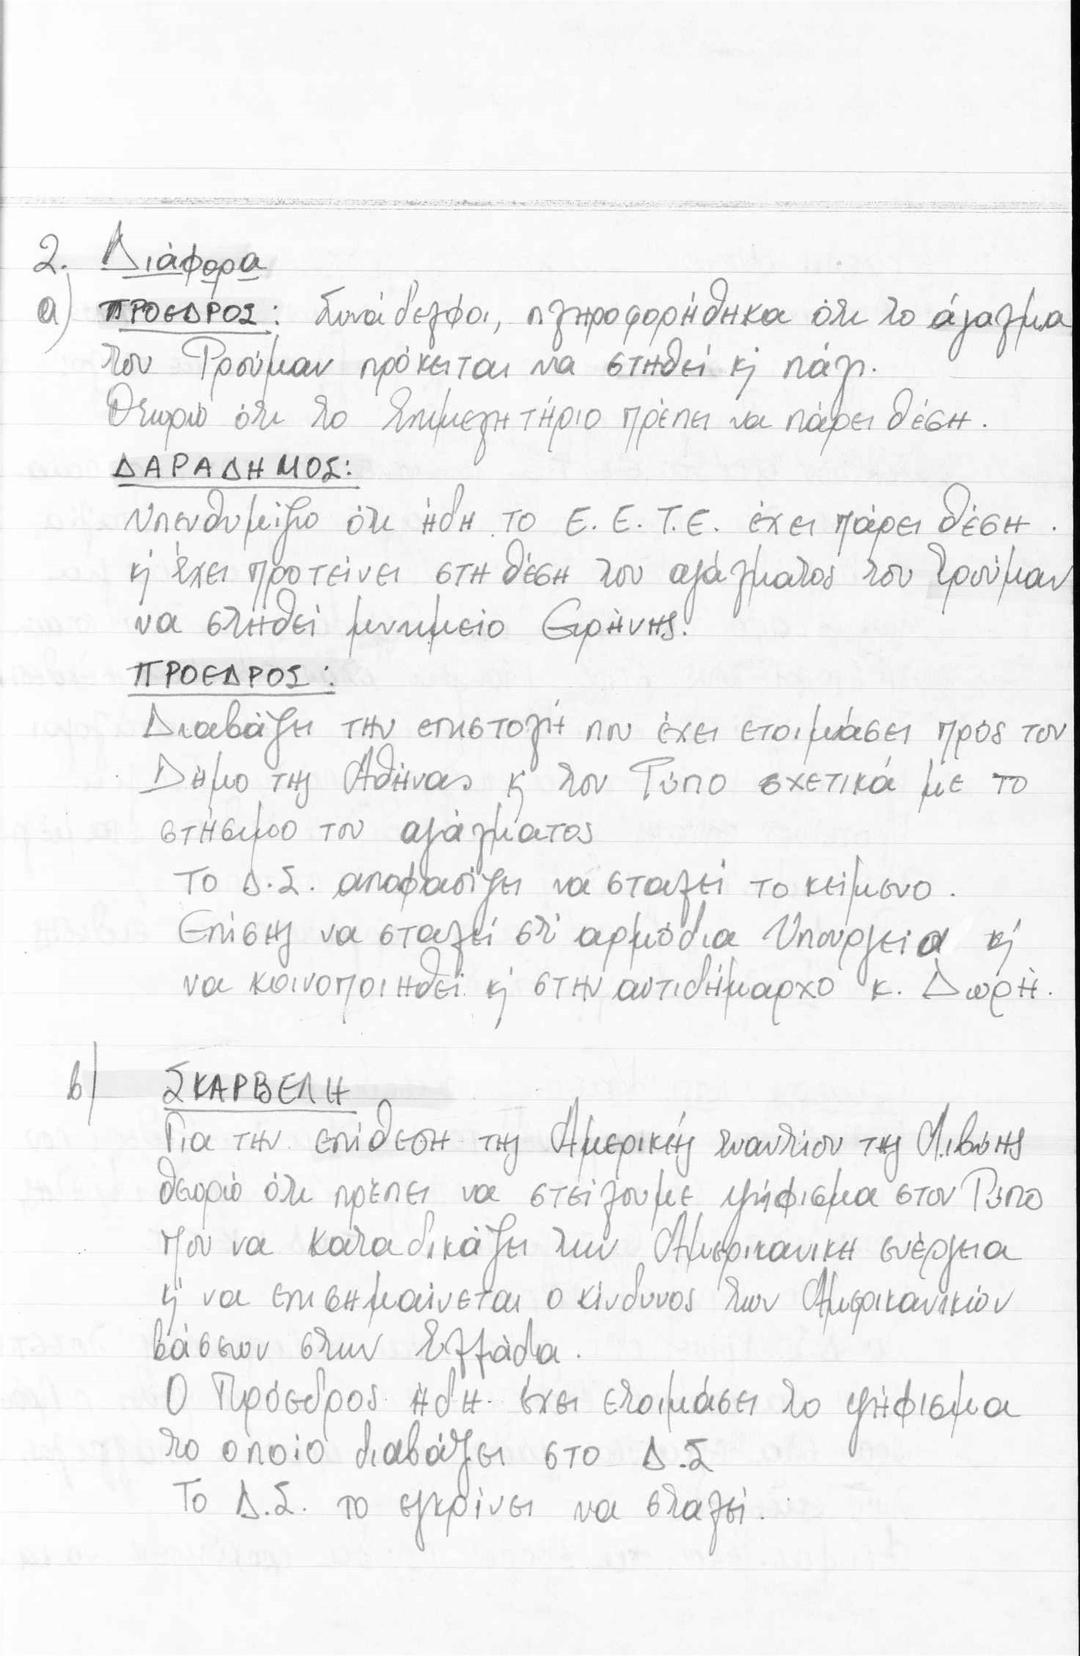 2. Διάφορα
a) ΠΡΟΕΔΡΟΣ: Συνάδελφοι, πληροφορήθηκα ότι το άγαλμα
του Τρούμαν πρόκειται να στηθεί κ' πάλι.
Θεωρώ ότι το Επιμελητήριο πρέπει να πάρει θέση.
ΔΑΡΑΔΗΜΟΣ:
Υπενθυμίζω ότι ήδη το Ε.Ε.Τ.Ε. έχει πάρει θέση.
κ' έχει προτείνει στη θέση του αγάλματος του Τρούμαν
να στηθεί μνημείο Ειρήνης.
ΠΡΟΕΔΡΟΣ:
Διαβάζει την επιστολή που έχει ετοιμάσει προς τον
Δήμο της Αθήνας κ' τον Τύπο σχετικά με το
στήσιμο του αγάλματος
Το Δ.Σ. αποφασίζει να σταλεί το κείμενο.
Επίσης να σταλεί στ' αρμόδια Υπουργεία κ'
να κοινοποιηθεί κ' στην αντιδήμαρχο κ. Δωρή.
b) ΣΚΑΡΒΕΛΗ
Για την επίθεση της Αμερικής εναντίον της Λιβύης
θεωρώ ότι πρέπει να στείλουμε ψήφισμα στον Τύπο
που να καταδικάζει την Αμερικανική ενέργεια
κ' να επισημαίνεται ο κίνδυνος των Αμερικανικών
βάσεων στην Ελλάδα.
Ο Πρόεδρος ήδη έχει ετοιμάσει το ψήφισμα
το οποίο διαβάζει στο Δ.Σ
Το Δ.Σ. το εγκρίνει να σταλεί.